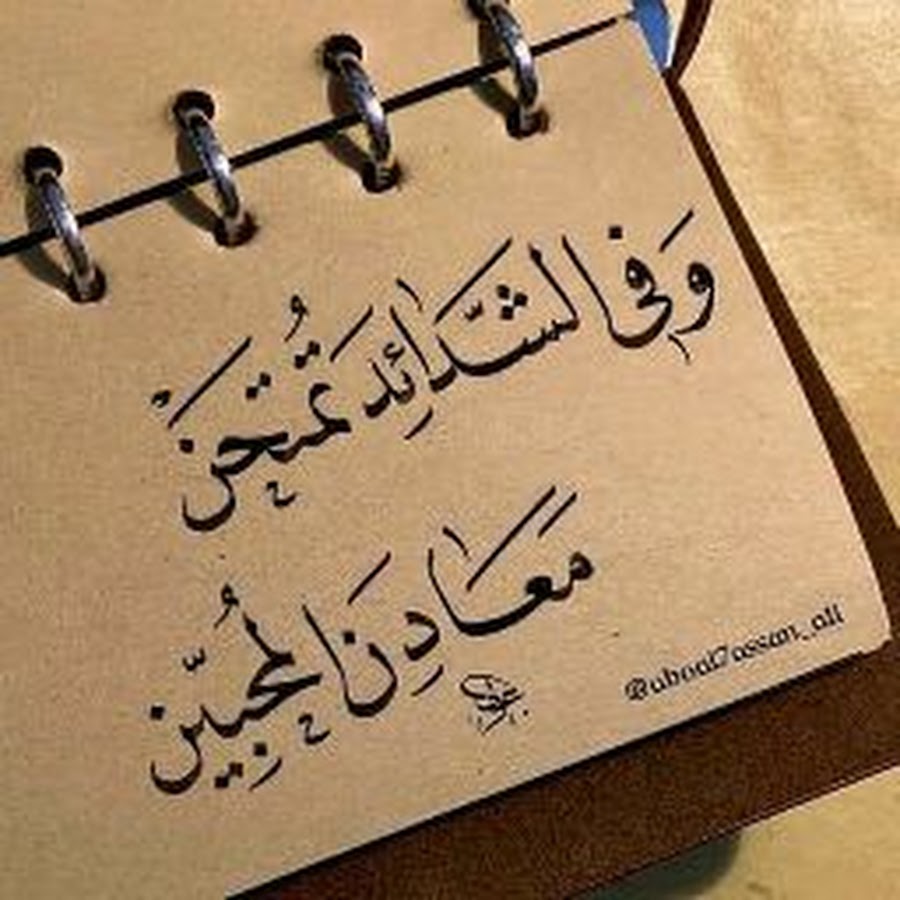 وَفى الشَّدَائِد تُمتَحَنْ
مَعَادِنَ المُحبِّين
@aboal7assan_ali